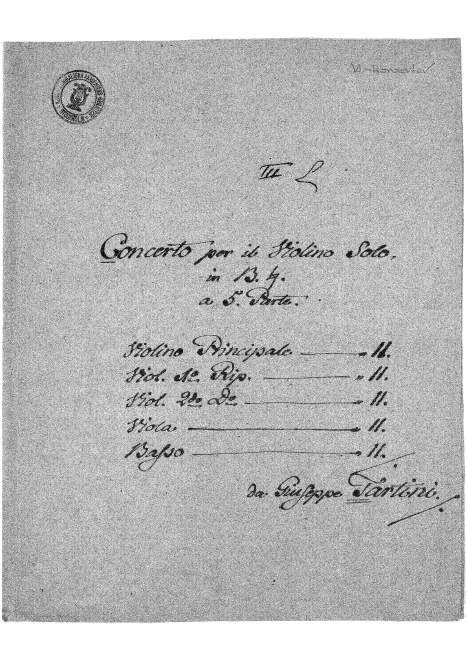 III
Concerto per il Violino Solo.
in B. ♮.
a 5. Parti.
Violino Principale — „ 11.
Viol. 1º. Rip. — „ 11.
Viol. 2do. Do — „ 11.
Viola — „ 11.
Basso — „ 11.
da Giuseppe Tartini.